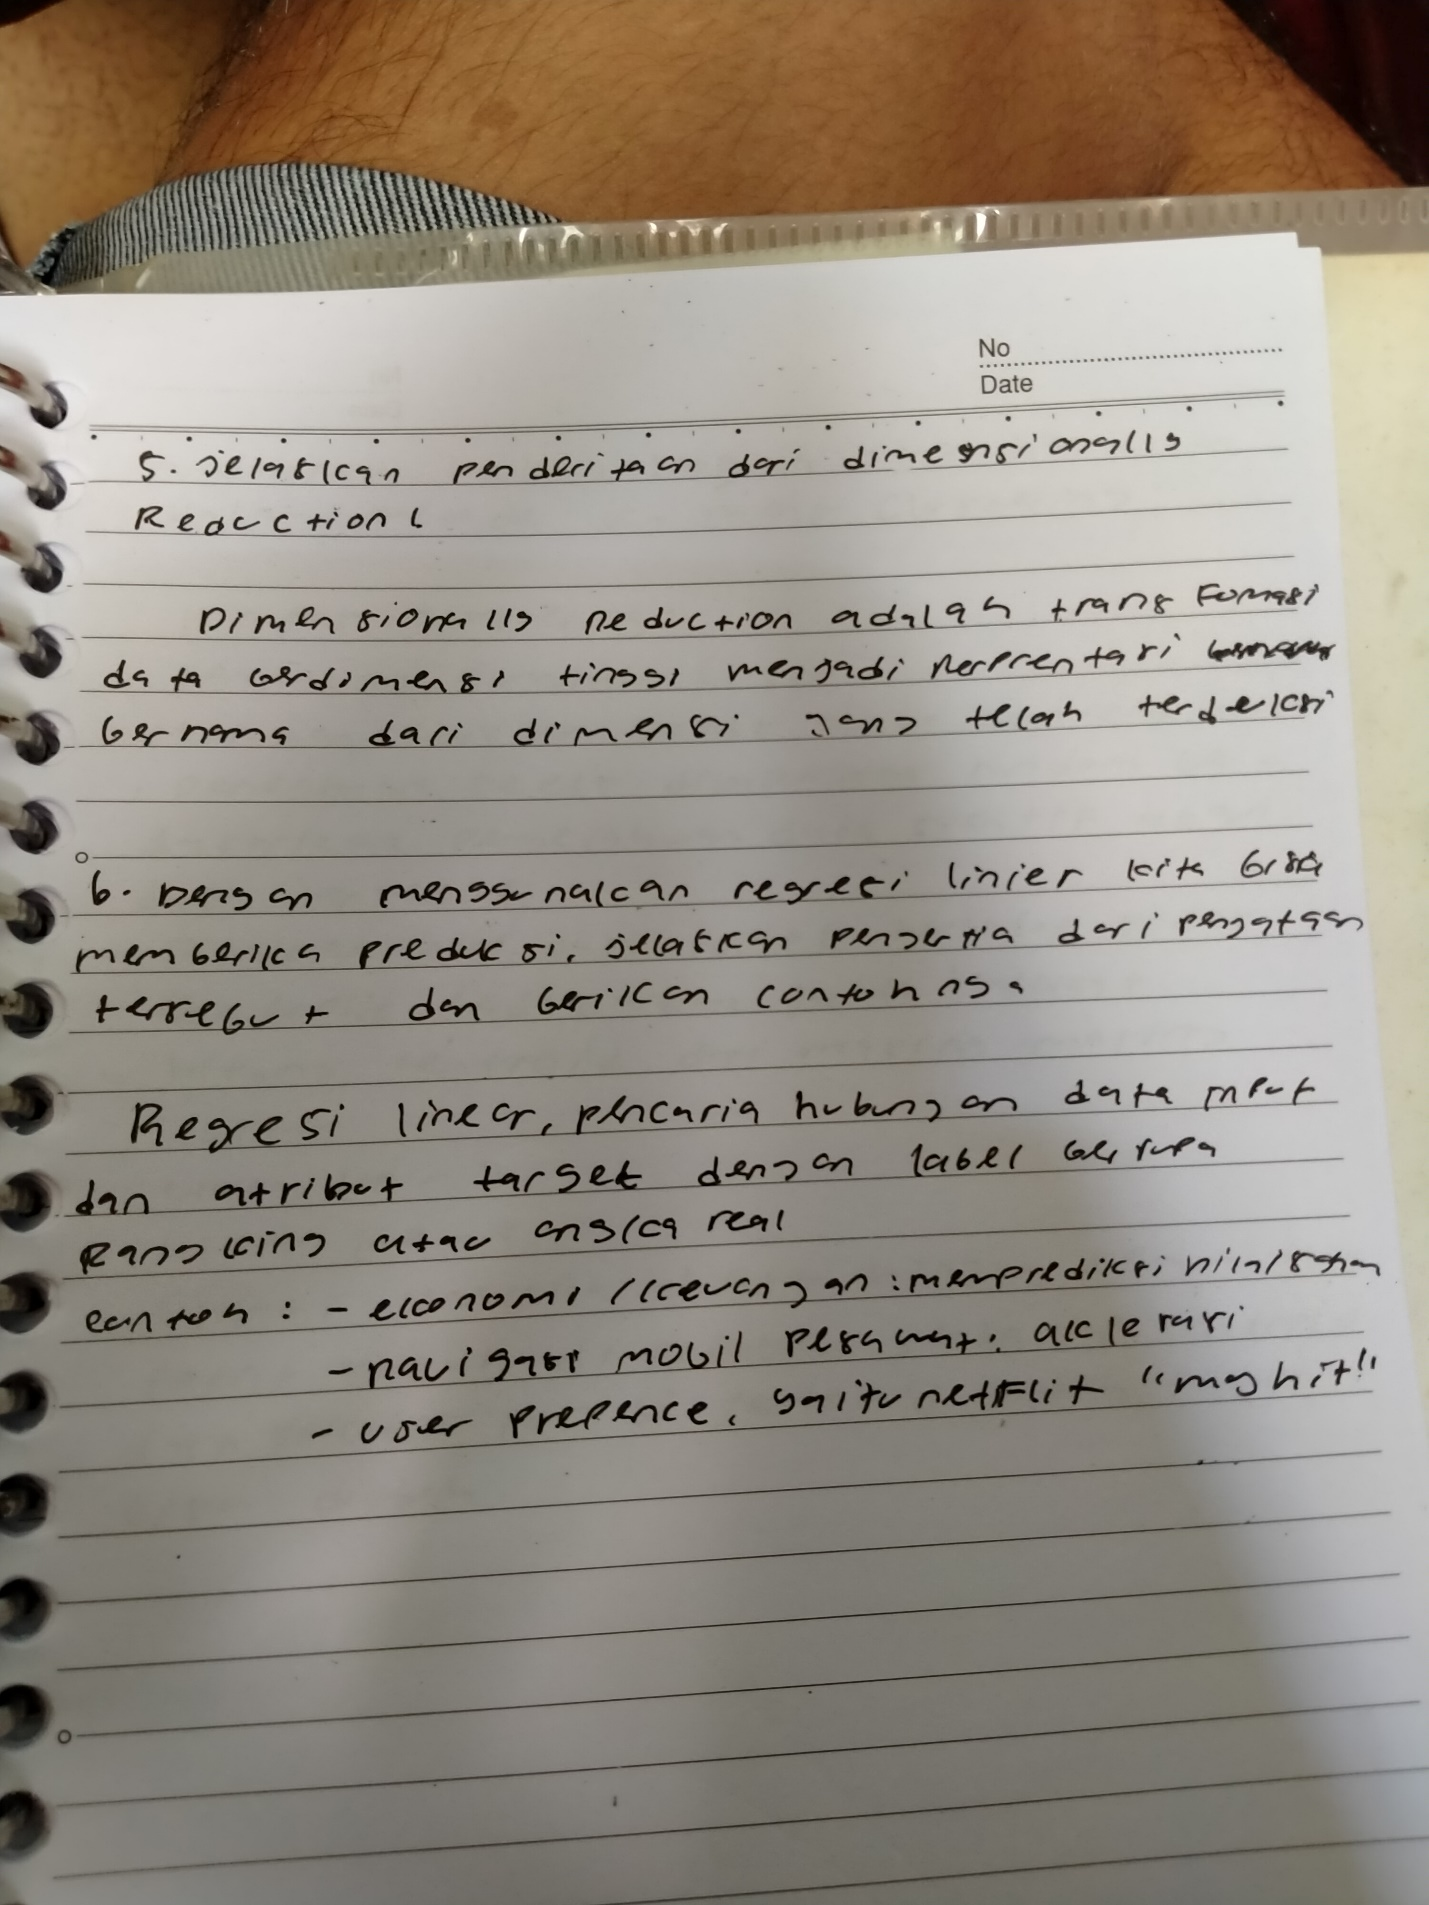 No
Date
5. jelaskan penderitaan dari dimensionalis
Reduction!
Dimensionalis Reduction adalah transformasi
data berdimensi tinggi menjadi
bermana dari dimensi yang telah
6. Dengan menggunakan regresi linier kita bisa
memberika preduksi. jelaskan pengertia dari penyataan
tersebut dan berikan contohny.
Regresi linear, pencaria hubungan data input
dan atribut target dengan label berupa
Rangking atau angka real
contoh : - ekonomi / keuangan : memprediksi nilai saham
- navigasi mobil pesawat : aklerasi
- user prepence, yaitu netflit "may hit"